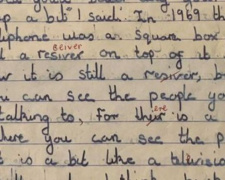 up a bit I said. In 1969 th
lephone was a square box
beiver
d a resiver on top of it
w it is still a resiver, b
u can see the people yo
talking to, For their is a
ere
here you can see the p
t is a bit like a televisio